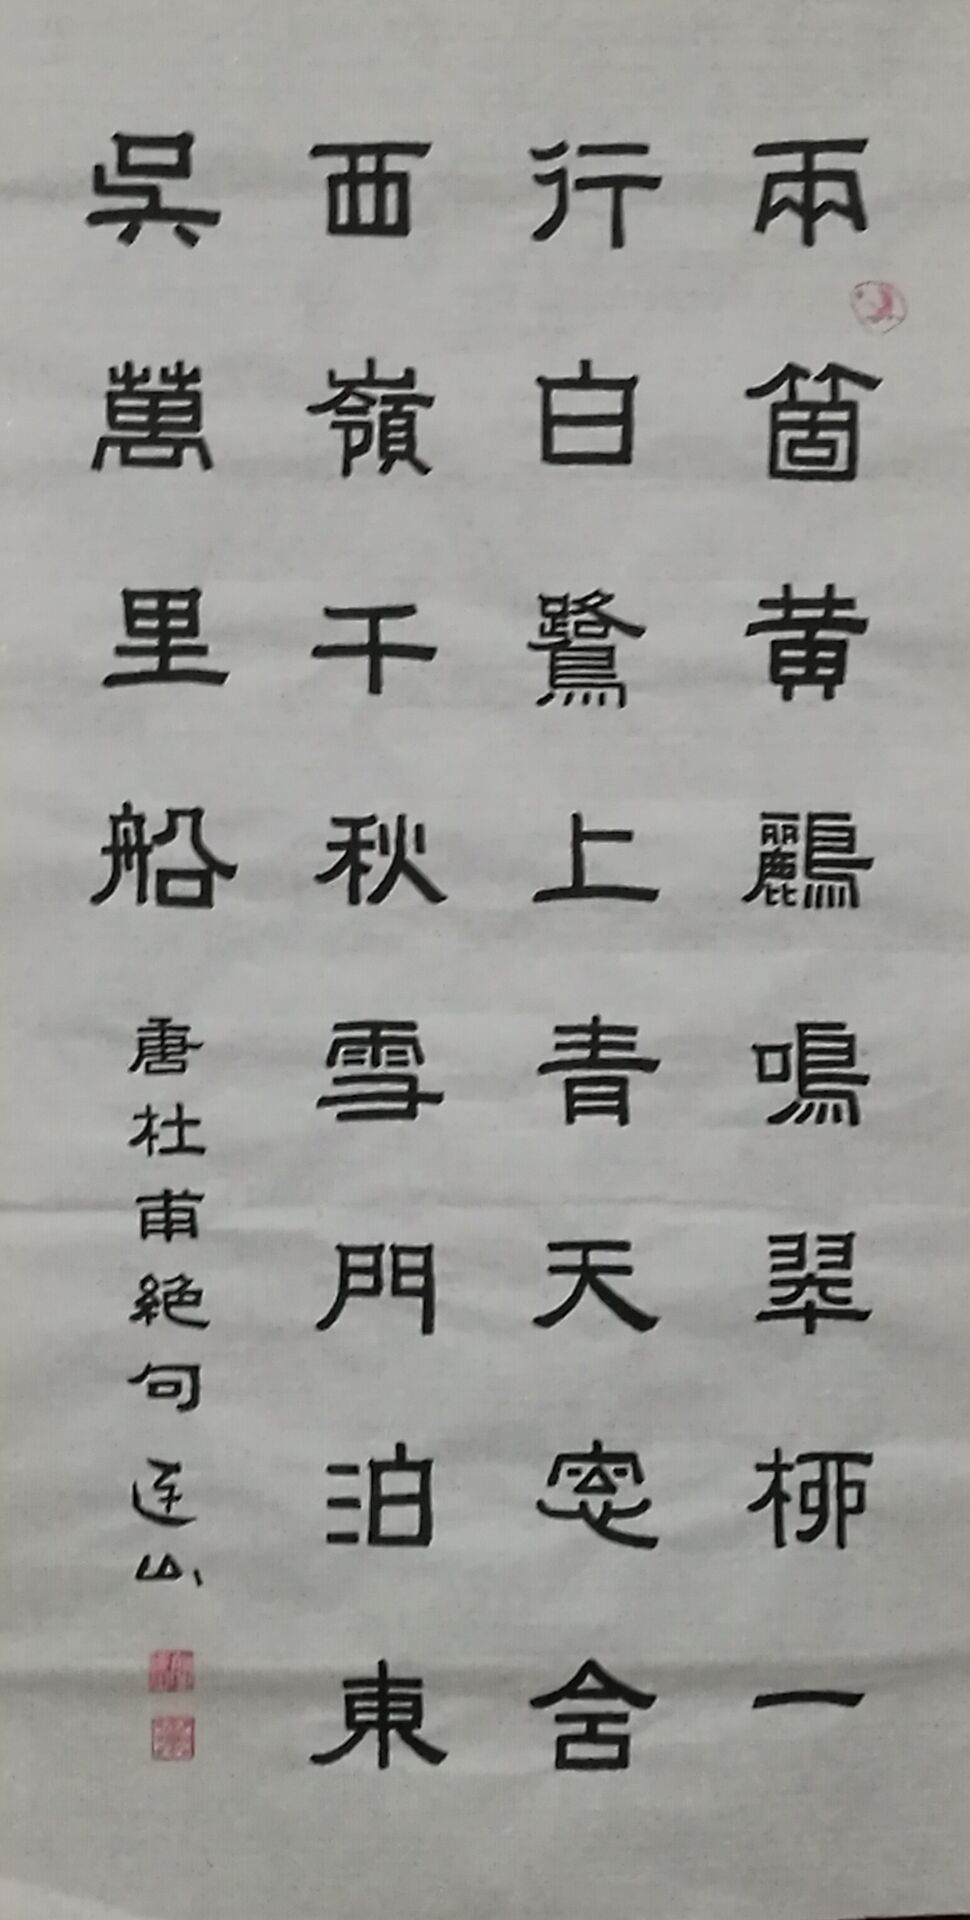 兩箇黄鸝鳴翠柳一
行白鷺上青天窓舍
西嶺千秋雪門泊東
吳萬里船
唐杜甫絕句